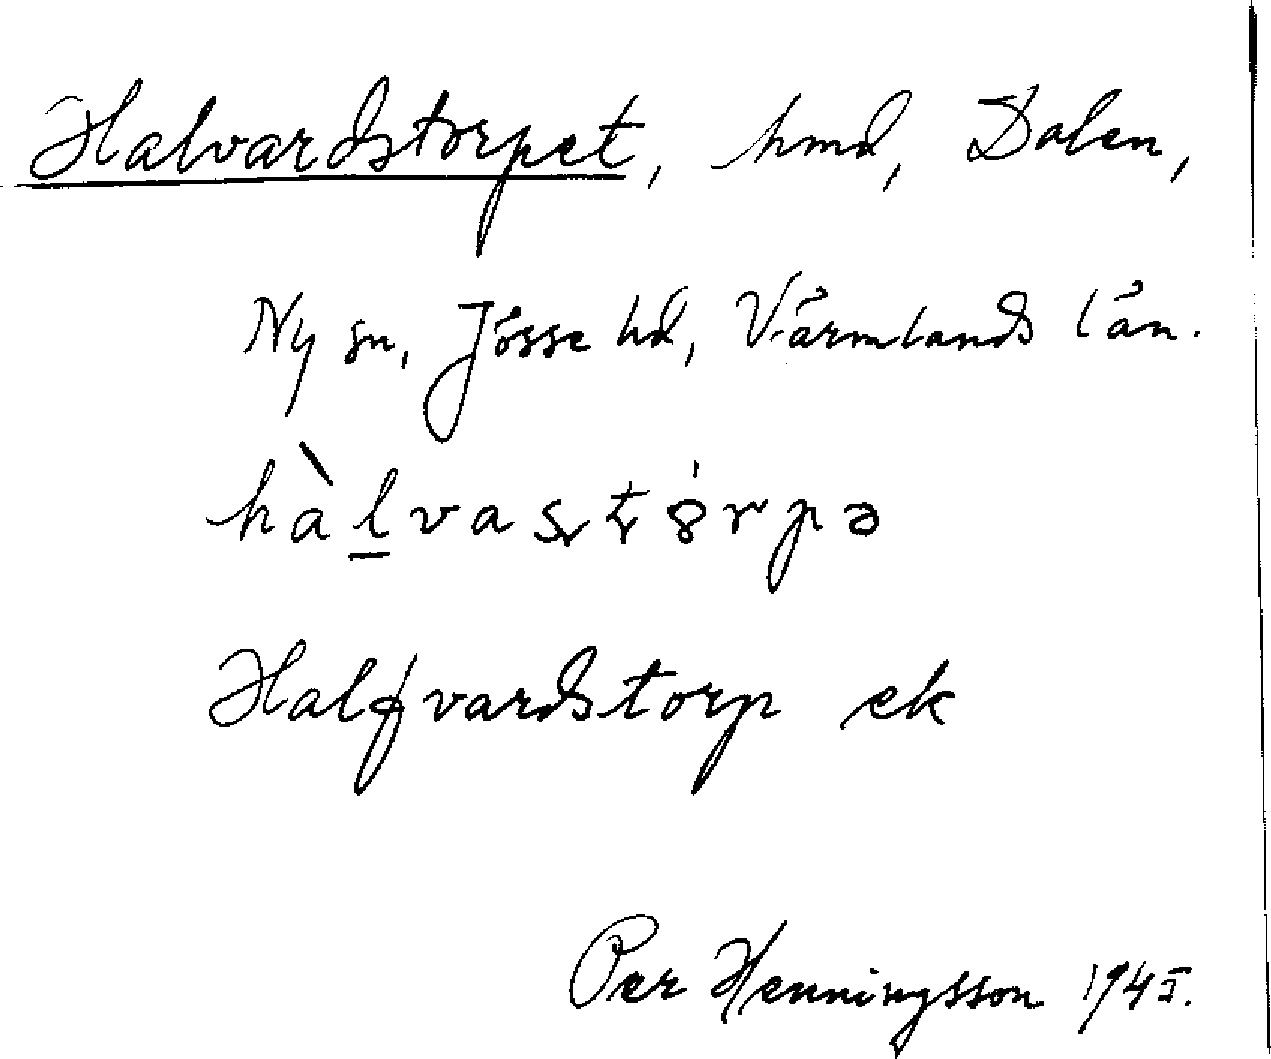 Halvardstorpet, hmd, Dalen,
Ny sn, Jösse hd, Värmlands län.
hàlvaʂʈȣ́rpə
Halfvardstorp ek
Per Henningsson 1945.